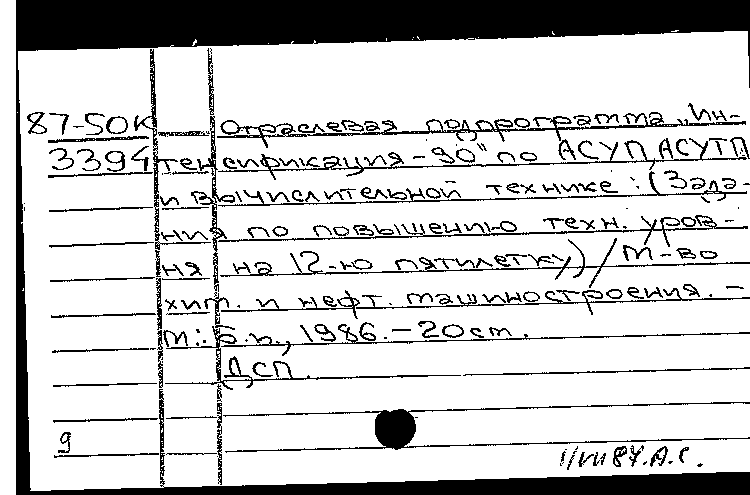 87-50К Отраслевая подпрограмма „Ин-
3394 тенсификация-90" по АСУП, АСУТП
и вычислительной технике: (Зада-
ния по повышению техн. уров-
ня на 12-ю пятилетку) / М-во
хим. и нефт. машиностроения. –
М.: Б.и., 1986. – 20 см.
ДСП.
9
1/VII 87. А.С.